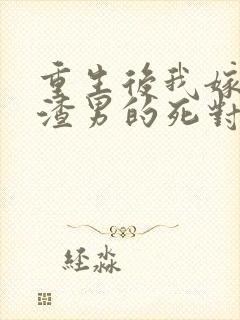 重生後我嫁
渣男的死對
経淼